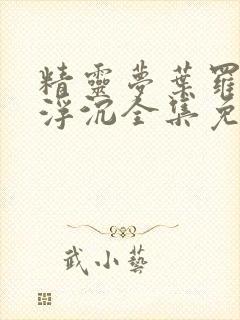 精靈夢葉羅
浮沉全集免
武小藝